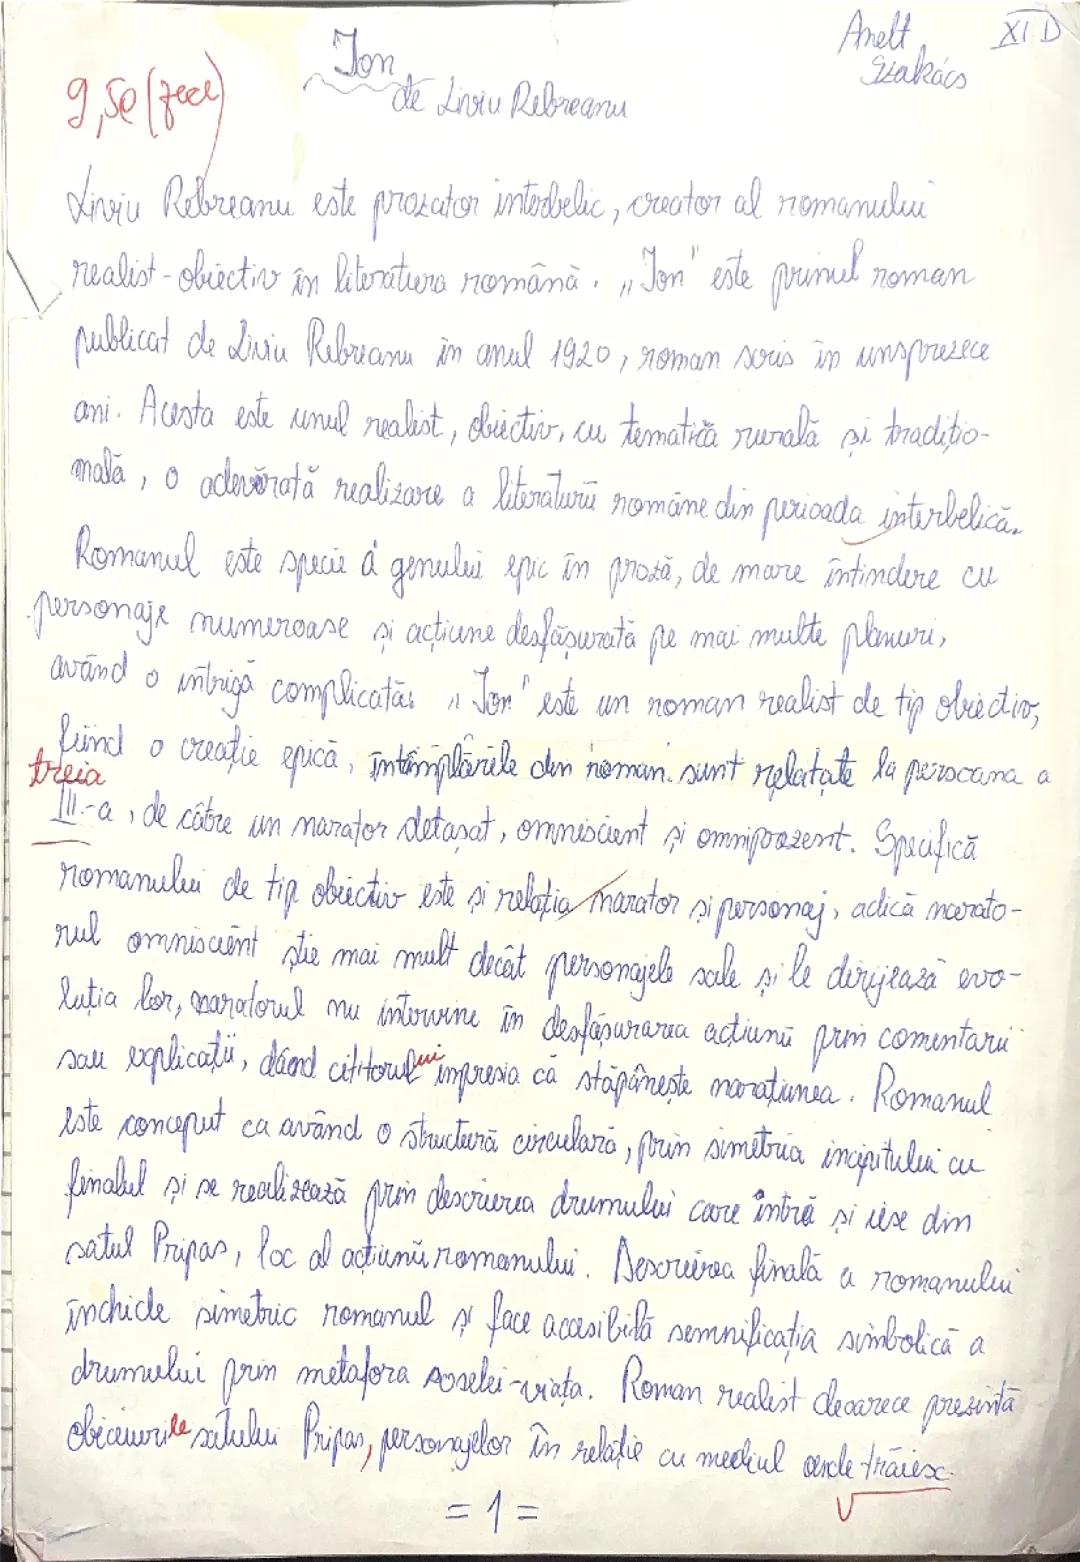 Anelt XI.D
Szakács
Ion
de Liviu Rebreanu
9,50 (zece)
Liviu Rebreanu este prozator interbelic, creator al romanului
realist-obiectiv în literatura română. „Ion" este primul roman
publicat de Liviu Rebreanu în anul 1920, roman scris în unsprezece
ani. Acesta este unul realist, obiectiv, cu tematică rurală și tradițio-
nală, o adevărată realizare a literaturii române din perioada interbelică.
Romanul este specie a genului epic în proză, de mare întindere cu
personaje numeroase și acțiune desfășurată pe mai multe planuri,
având o intrigă complicată. „Ion" este un roman realist de tip obiectiv,
fiind o creație epică, întâmplările din roman sunt relatate la persoana a
treia
III.-a, de către un narator detașat, omniscient și omniprezent. Specifică
romanului de tip obiectiv este și relația narator și personaj, adică narato-
rul omniscient știe mai mult decât personajele sale și le dirijează evo-
luția lor, naratorul nu intervine în desfășurarea acțiunii prin comentarii
sau explicații, dând cititorului impresia că stăpânește narațiunea. Romanul
este conceput ca având o structură circulară, prin simetria incipitului cu
finalul și se realizează prin descrierea drumului care intră și iese din
satul Pripas, loc al acțiunii romanului. Descrierea finală a romanului
închide simetric romanul și face accesibilă semnificația simbolică a
drumului prin metafora șoselei-viața. Roman realist deoarece prezintă
obiceiurile satului Pripas, personajelor în relație cu mediul unde trăiesc.
= 1 =